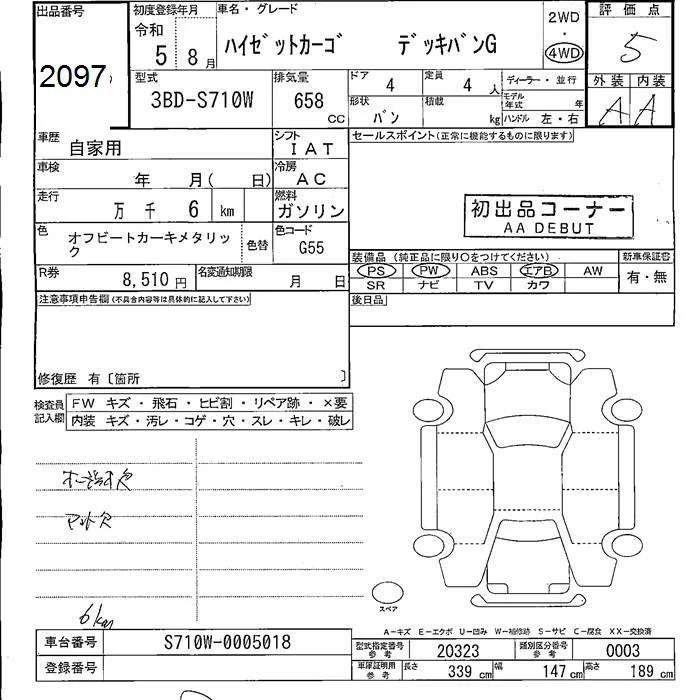 出品番号
2097
初度登録年月
令和
5 8 月
車名・グレード
ハイゼットカーゴ デッキバンG
2WD
・
4WD
評価点
5
外装 内装
A A
型式
3BD-S710W
排気量
658
CC
ドア
4
定員
4 人
ディーラー・並行
形状
バン
積載
kg
モデル
年式 年
ハンドル 左・右
車歴
自家用
シフト
IAT
車検
年 月( 日)
冷房
AC
走行
万 千 6 km
燃料
ガソリン
色
オフビートカーキメタリック
色替
色コード
G55
R券
8,510 円
名変通知期限
月 日
セールスポイント(正常に機能するものに限ります)
初出品コーナー
AA DEBUT
装備品 (純正品に限り○をつけてください)
新車保証書
PS PW ABS エアB AW
有・無
SR ナビ TV カワ
後日品
注意事項申告欄(不具合内容等は具体的に記入して下さい)
修復歴 有〔箇所 〕
検査員
記入欄
FW キズ ・ 飛石 ・ ヒビ割 ・ リペア跡 ・ ×要
内装 キズ ・ 汚レ ・ コゲ ・ 穴 ・ スレ ・ キレ ・ 破レ
マット欠
6km
スペア
A-キズ E-エクボ U-凹み W-補修跡 S-サビ C-腐食 XX-交換済
車台番号
S710W-0005018
登録番号
型式指定番号
参考
20323
類別区分番号
参考
0003
車庫証明用
参考
長さ 339 cm 幅 147 cm 高さ 189 cm